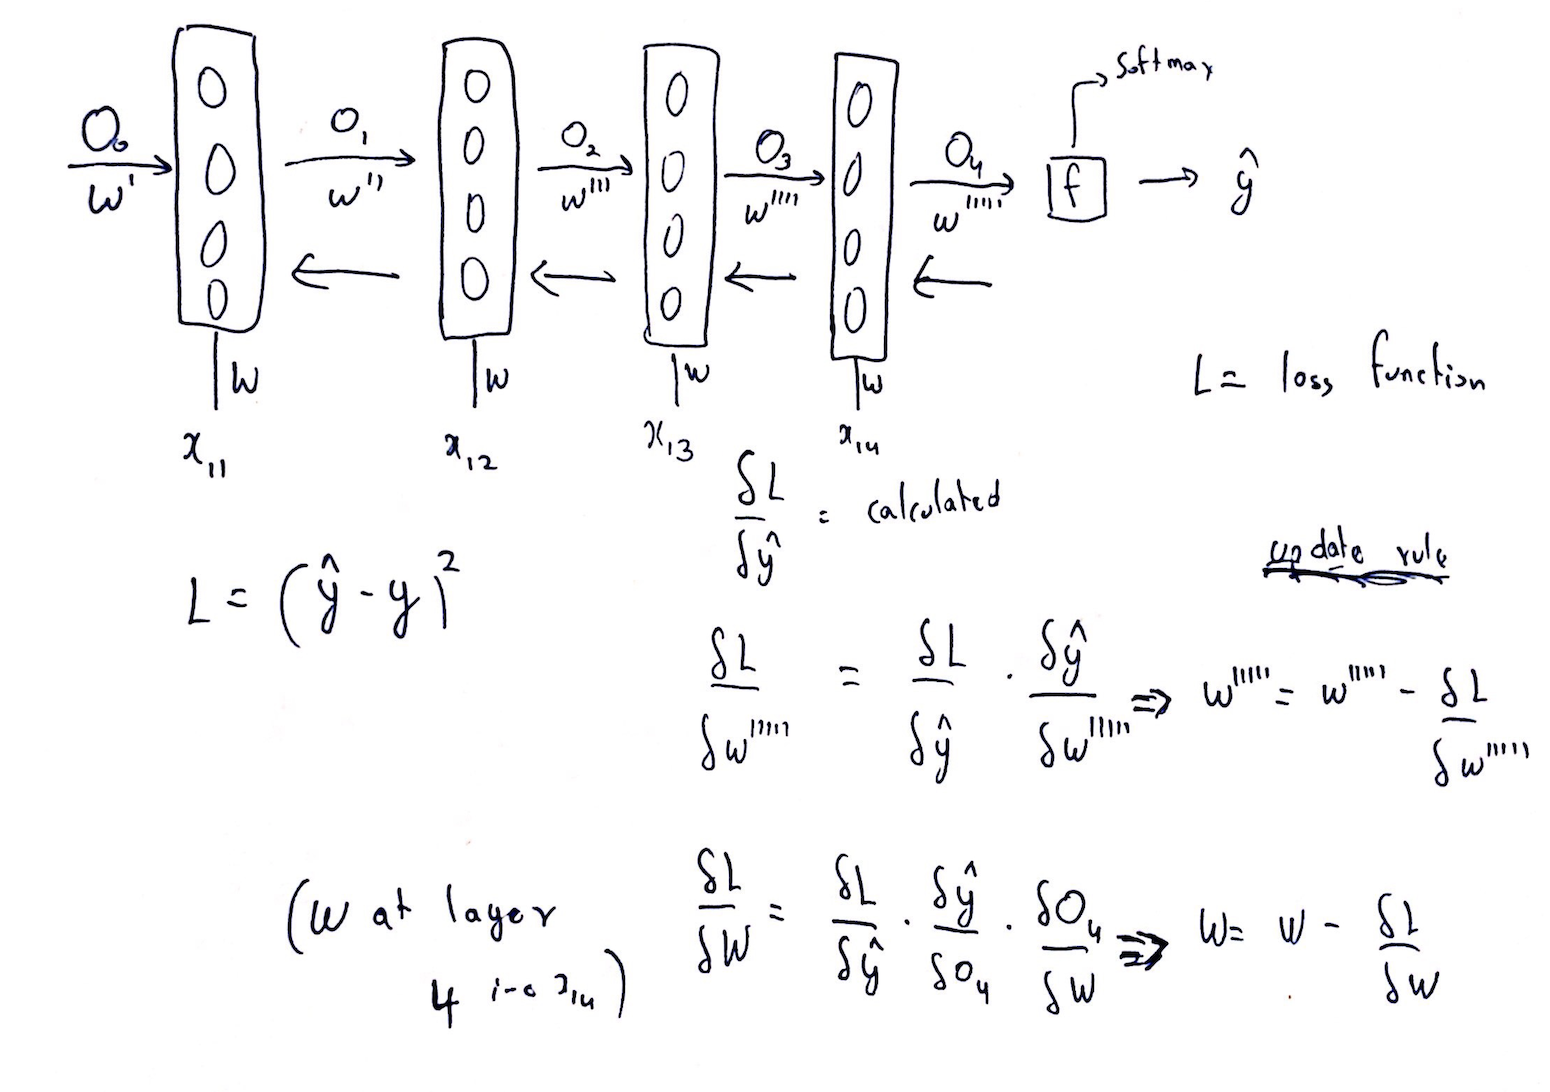 Softmax
O₀ O₁ O₂ O₃ O₄
w' w'' w''' w'''' w'''''
f → ŷ
w w w w
x₁₁ x₁₂ x₁₃ x₁₄
L = loss function
δL/δŷ = calculated
update rule
L = (ŷ - y)²
δL/δw''''' = δL/δŷ . δŷ/δw''''' ⇒ w''''' = w''''' - δL/δw'''''
(w at layer
4 i-e x₁₄)
δL/δW = δL/δŷ . δŷ/δO₄ . δO₄/δW ⇒ W = W - δL/δW